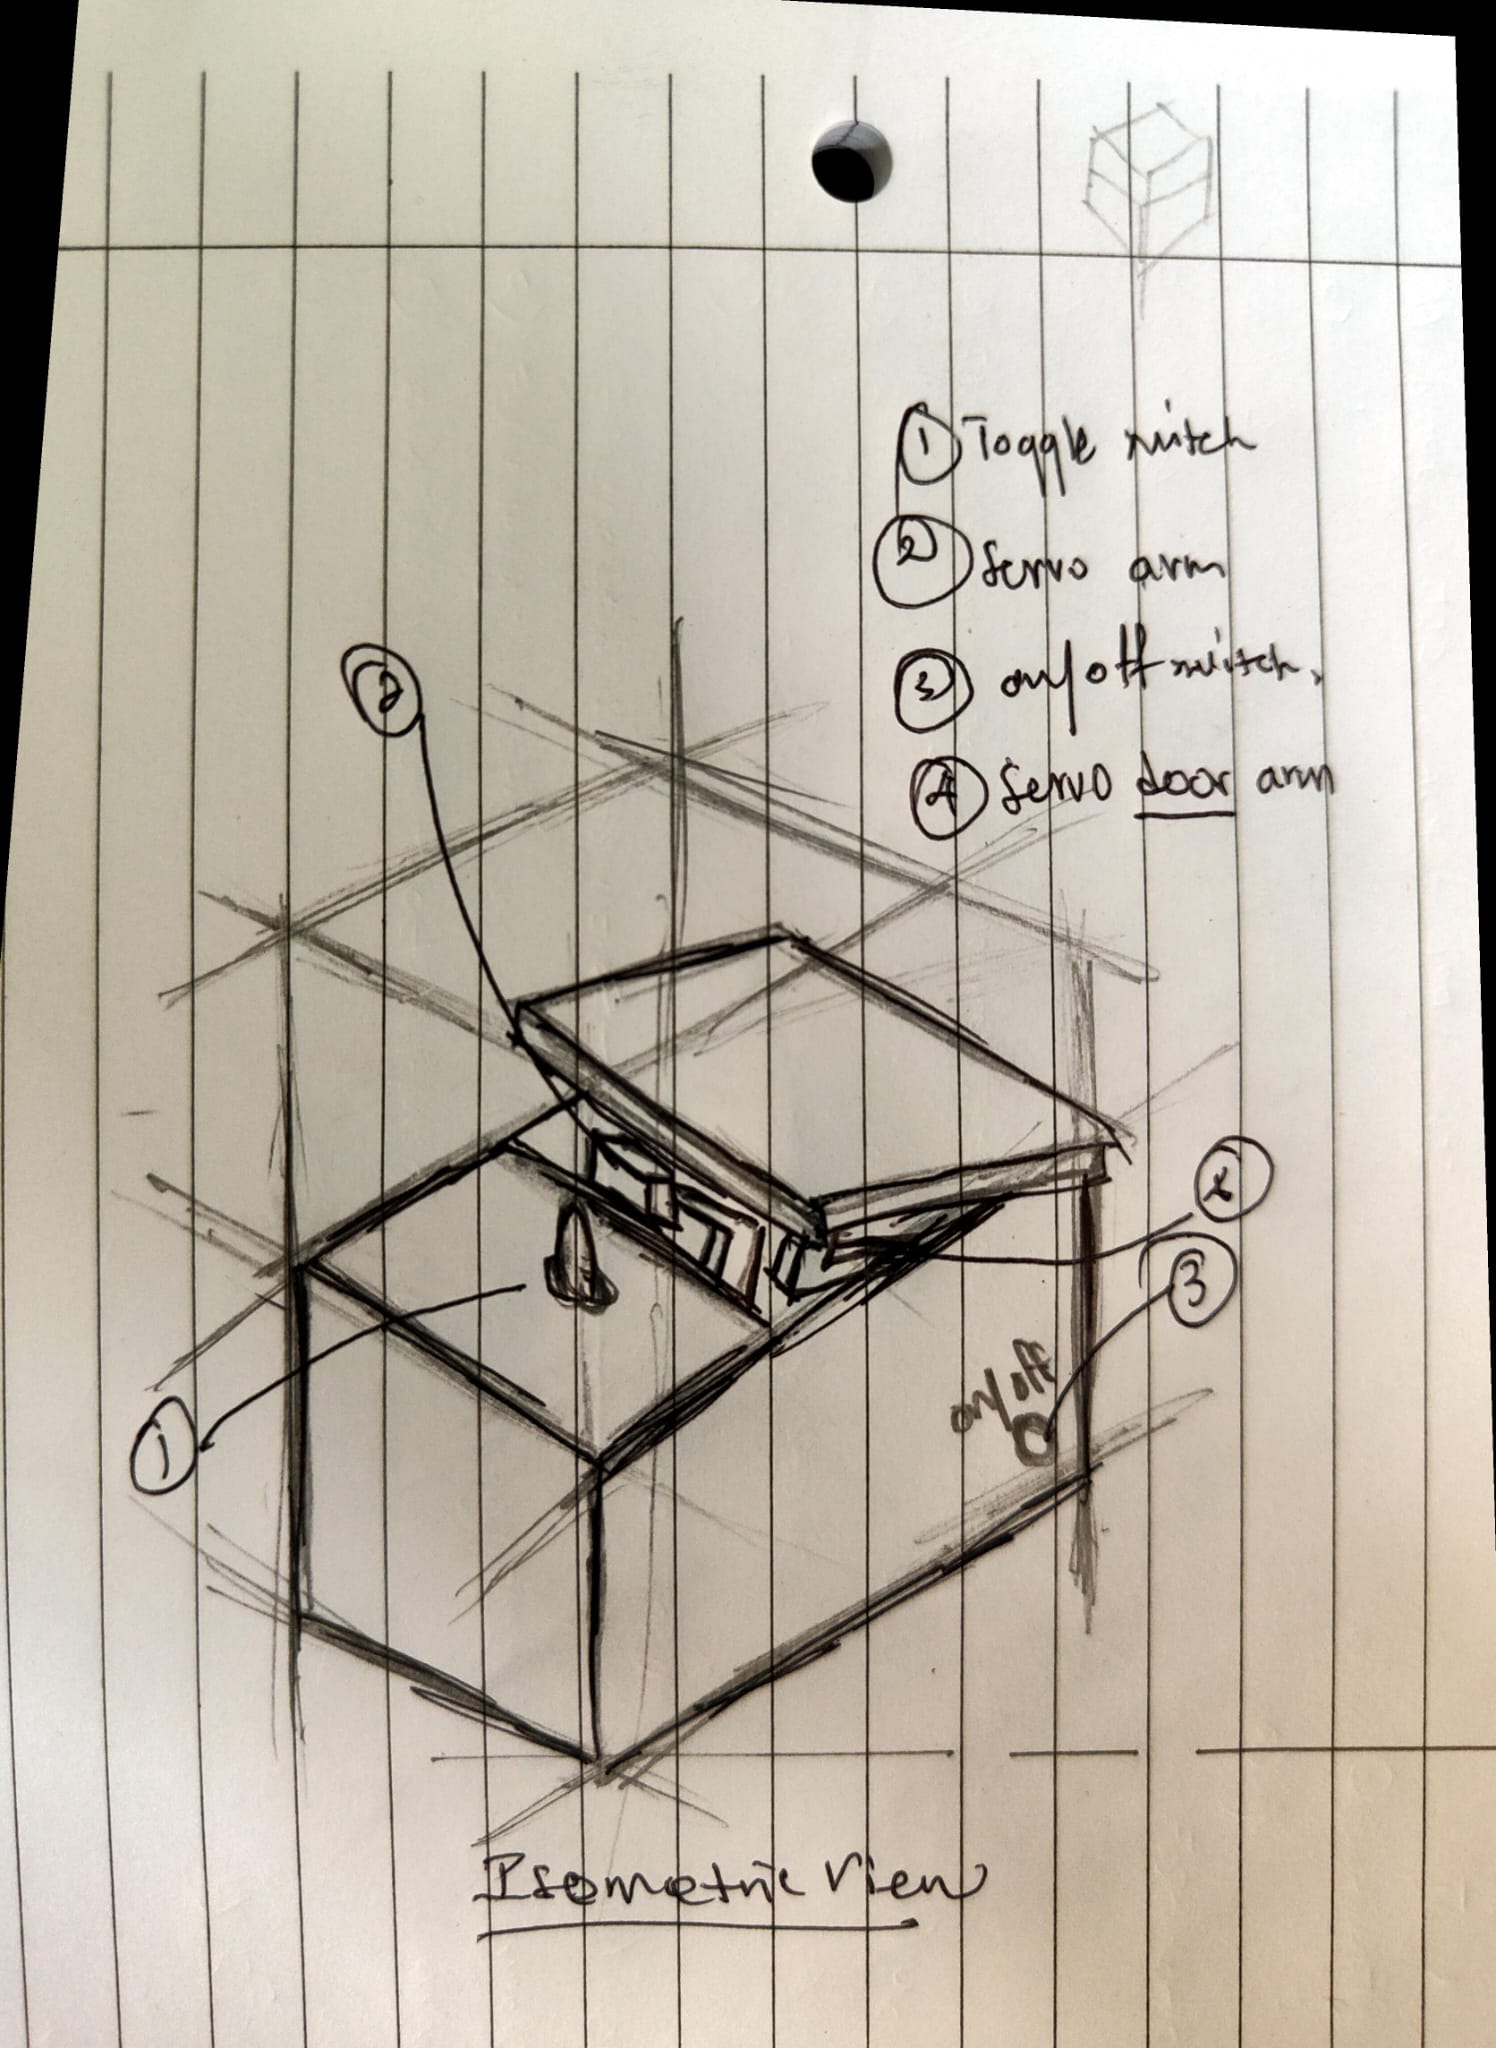 ① Toggle switch
② Servo arm
③ on/off switch.
④ Servo door arm
②
④
③
on/off
①
Isometric View